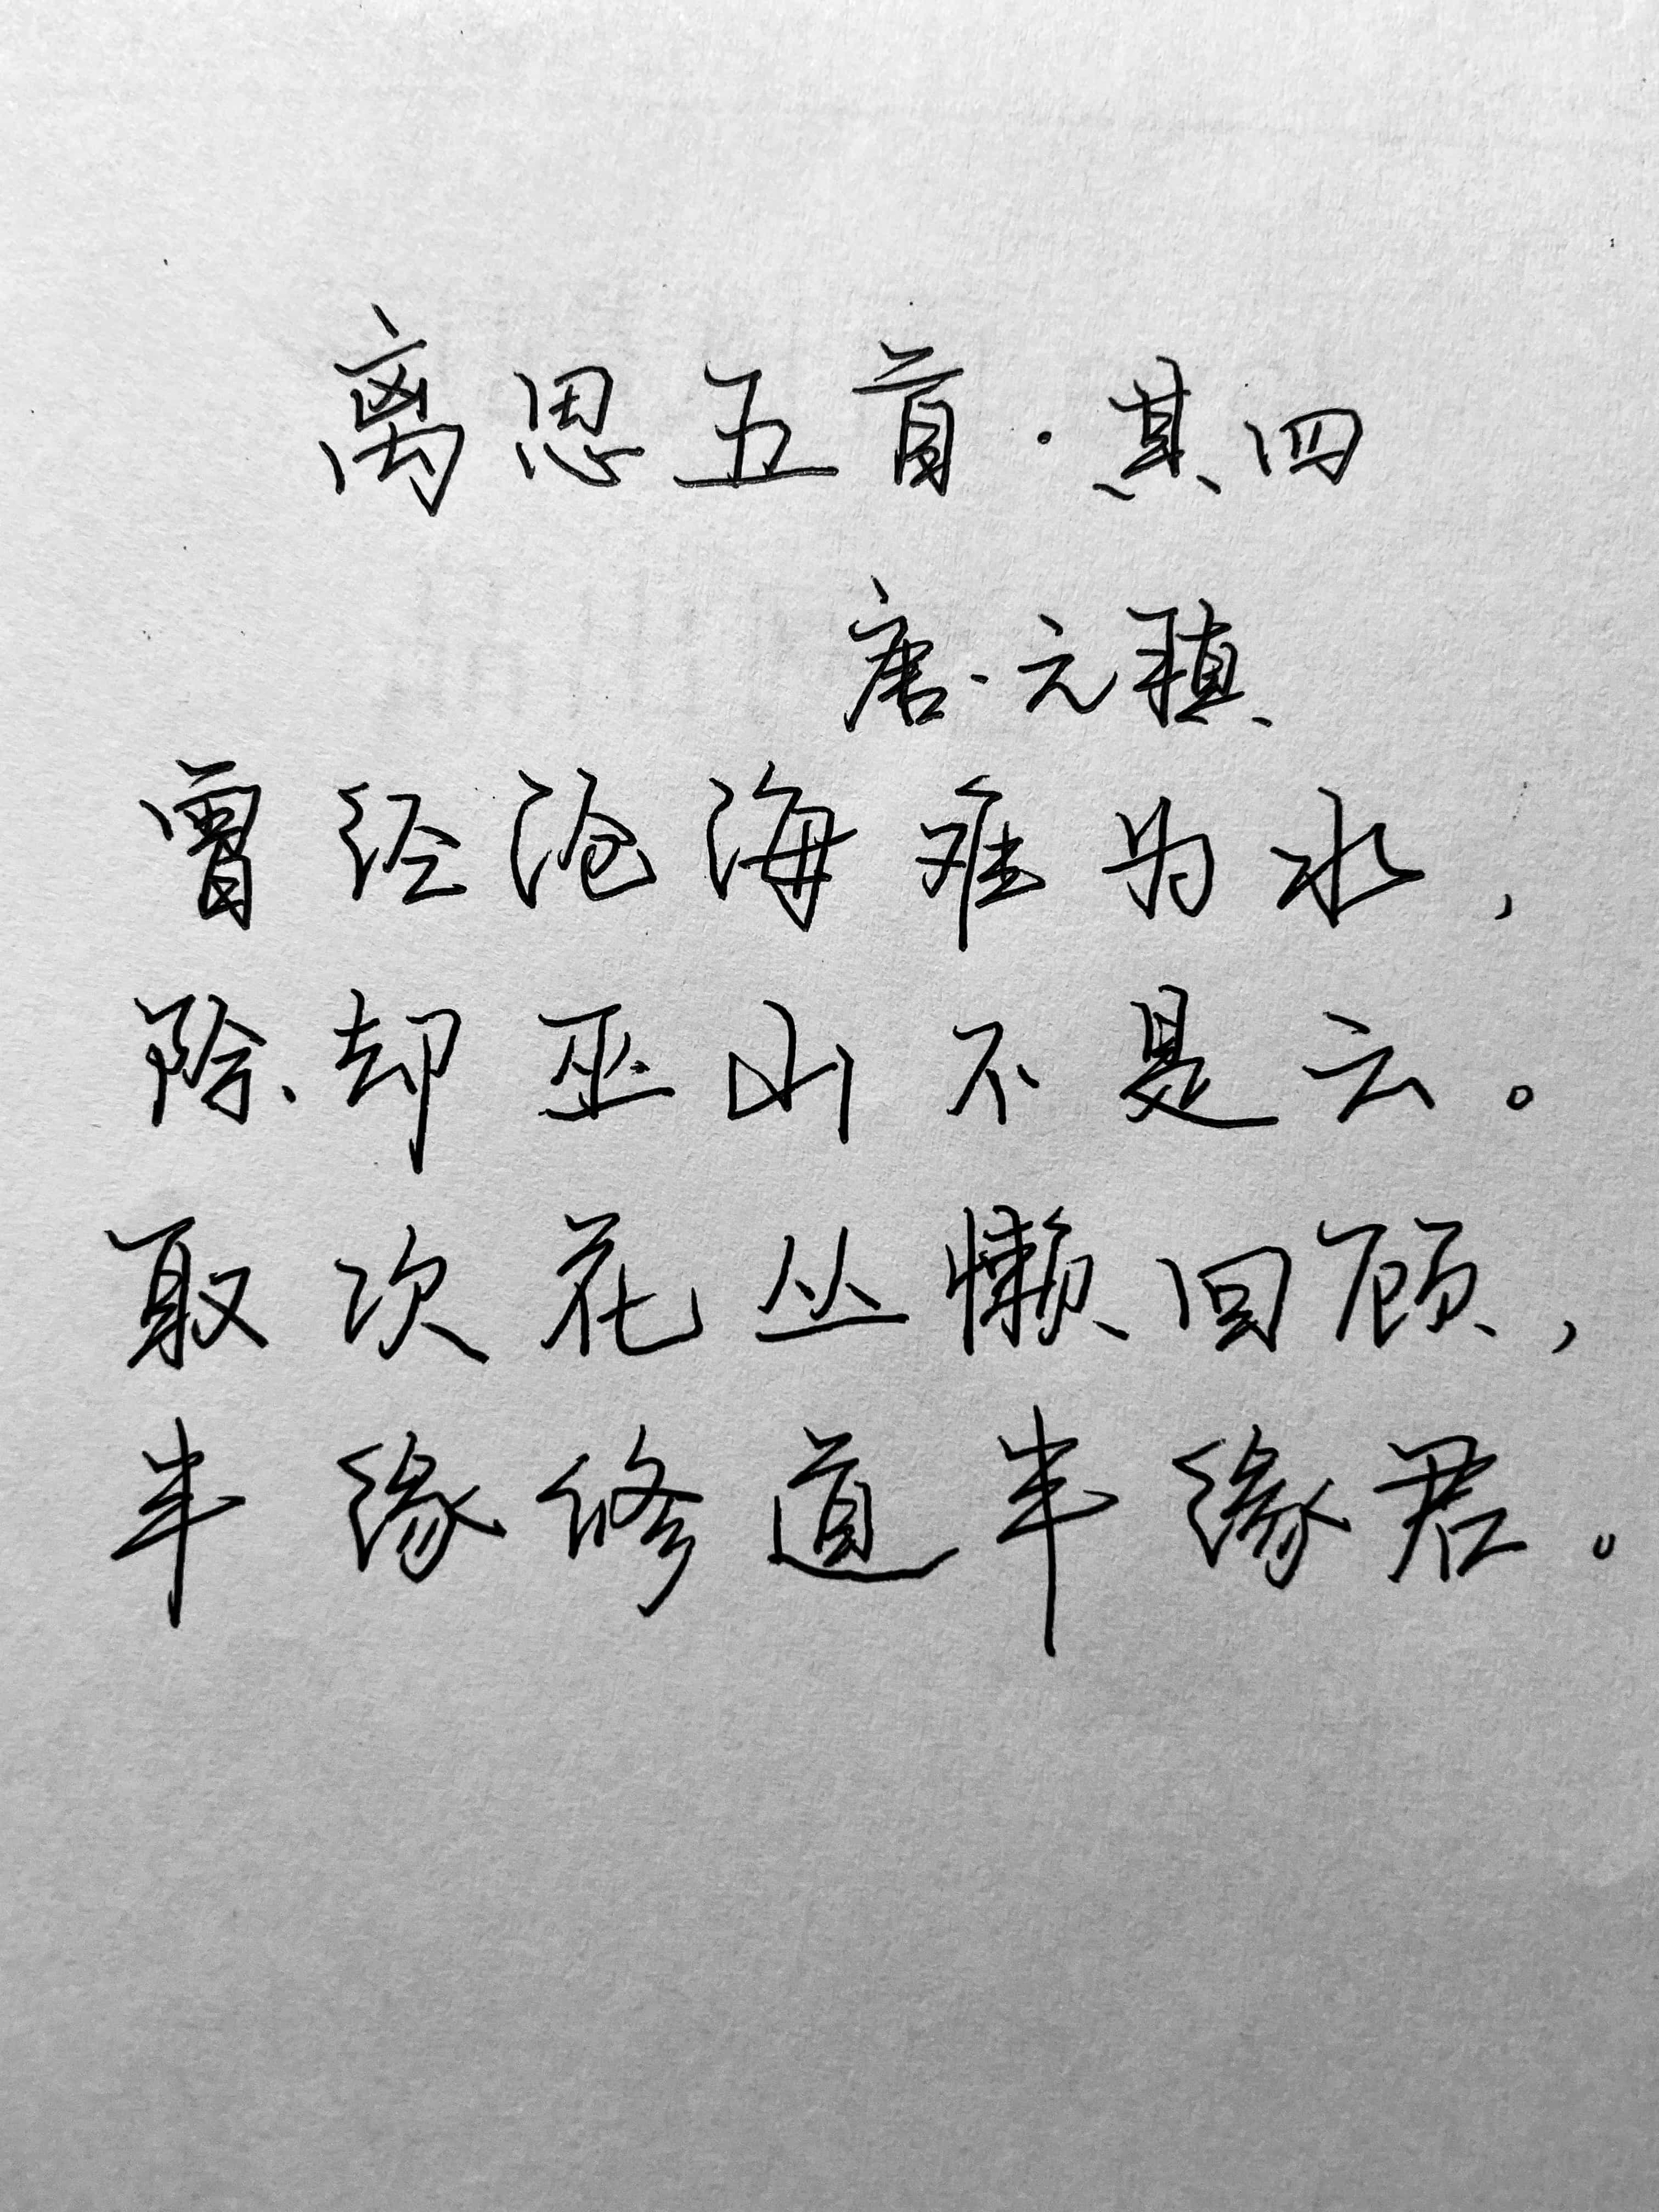 离思五首·其四
唐·元稹
曾经沧海难为水，
除却巫山不是云。
取次花丛懒回顾，
半缘修道半缘君。